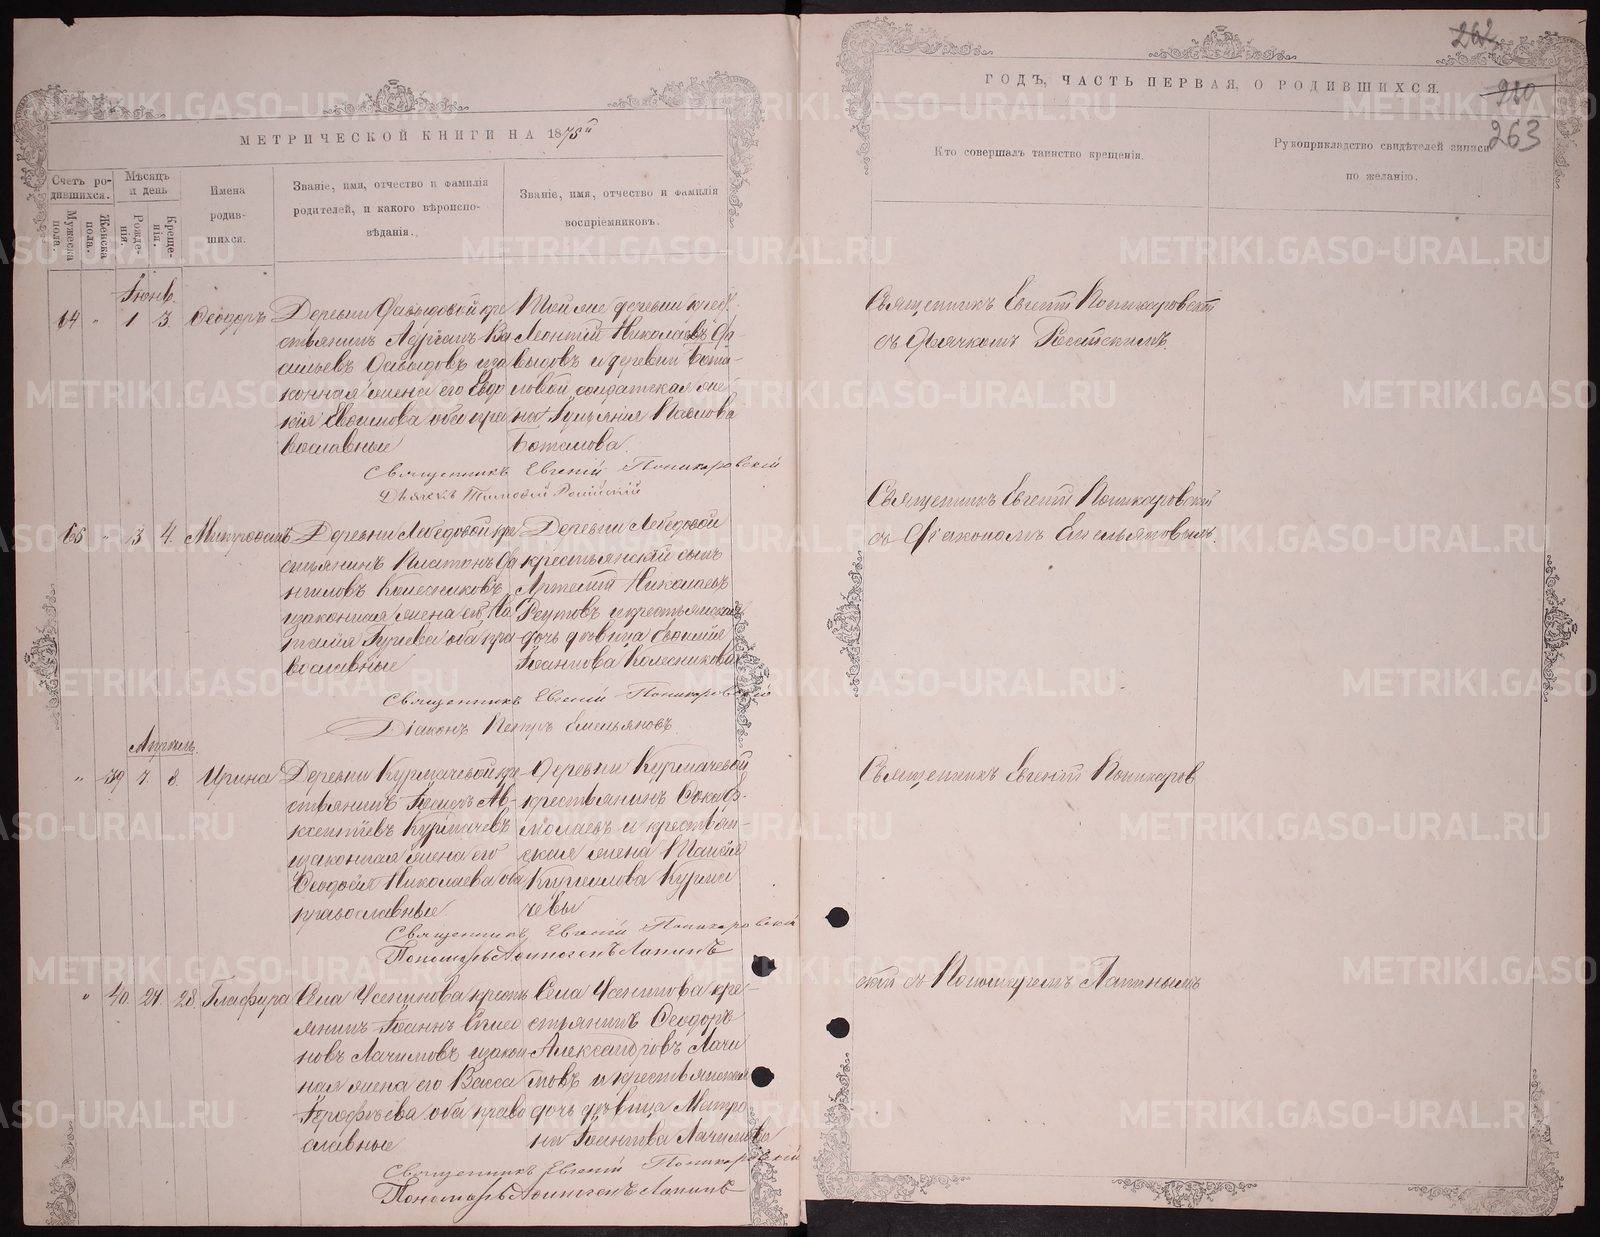 МЕТРИЧЕСКОЙ КНИГИ НА 1875й
Счетъ родившихся.
Мужеска пола.
Женска пола.
Мѣсяцъ и день
Рожденія.
Крещенія.
Имена родившихся.
Званіе, имя, отчество и фамилія родителей, и какого вѣроисповѣданія.
Званіе, имя, отчество и фамилія воспріемниковъ.
64 " 1 3. Ѳеодоръ
Деревни Давыдовой кре
стьянинъ Адріанъ Ва
сильевъ Давыдовъ иза
конная жена его Евдо
кія оба пра
вославные
Тойже деревни крест.
Леонтій Николаевъ Да
выдовъ и деревни Бота
ловой солдатская же
на Павлова
Боталова.
Священникъ Евгеній Поникаровскій
65 " 3 4. Митрофанъ
Деревни Лебедовой кре
стьянинъ Платонъ Да
ниловъ Колесниковъ
изаконная жена его На
талія Гурьева оба пра
вославные
Деревни Лебедовой
крестьянскій сынъ
Артемій Николаевъ
Реутовъ и крестьянская
дочь дѣвица
Іоаннова Колесникова
Священникъ Евгеній Поникаровскій
Діаконъ Петръ Емельяновъ.
" 39 7. 8. Ирина
Деревни Курмачевой кре
стьянинъ Ав
ксентіевъ Курмачевъ
изаконная жена его
Ѳеодосія Николаева оба
православные
Деревни Курмачевой
крестьянинъ
и крестьян
ская жена
Курма
чевы
Священникъ Евгеній Поникаровскій
Пономарь Аѳиногенъ Лапинъ
" 40. 27 28. Глафира
Села Усенинова кресть
янинъ Іоаннъ
новъ Лачимовъ изакон
ная жена его Васса
Іероѳѣева оба право
славные
Села Усенинова кре
стьянинъ Ѳеодоръ
Александровъ Лачи
мовъ и крестьянская
дочь дѣвица Матро
на Іоаннова Лачимова
Священникъ Евгеній Поникаровскій
Пономарь Аѳиногенъ Лапинъ
ГОДЪ, ЧАСТЬ ПЕРВАЯ, О РОДИВШИХСЯ.
262
263
Кто совершалъ таинство крещенія.
Рукоприкладство свидѣтелей записи по желанію.
Священникъ Евгеній Поникаровскій
съ дьячкомъ
Священникъ Евгеній Поникаровскій
съ Діакономъ Емельяновымъ.
Священникъ Евгеній Поникаров
скій съ Пономаремъ Лапинымъ
METRIKI.GASO-URAL.RU